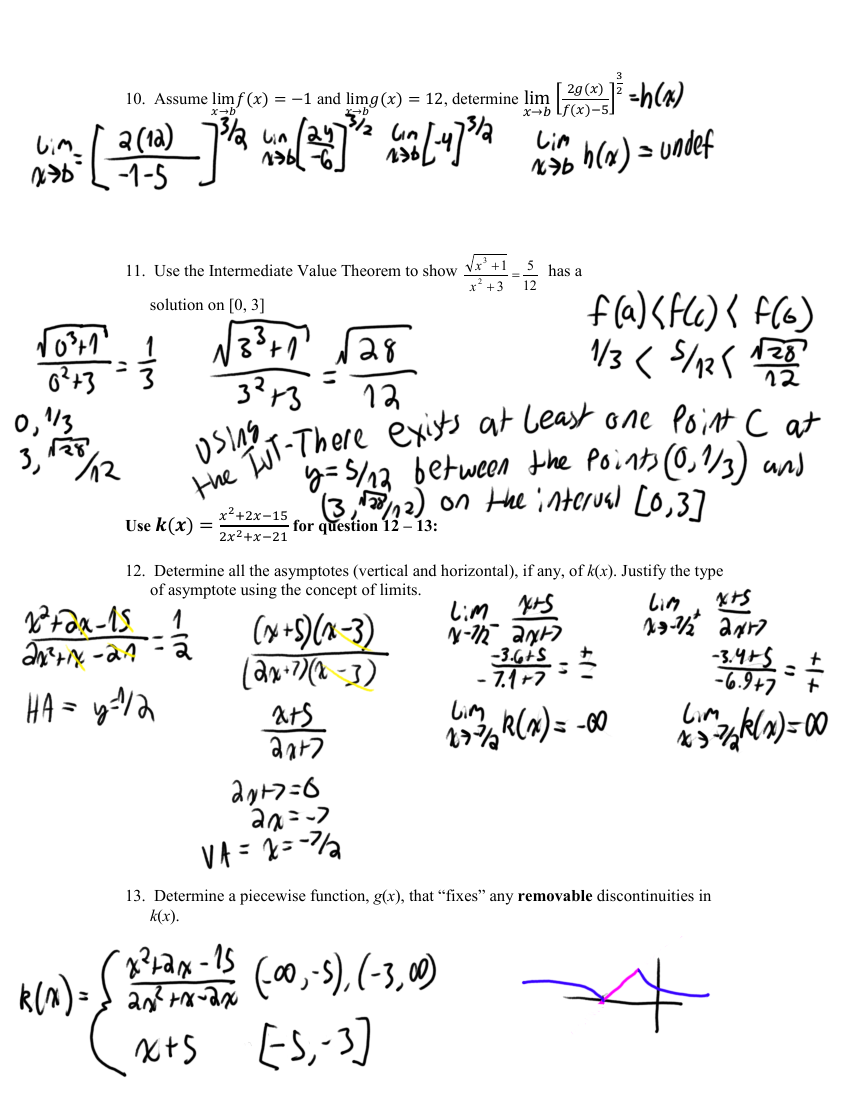 10. Assume lim x→b f(x) = −1 and lim x→b g(x) = 12, determine lim x→b [2g(x)/f(x)−5]^3/2 = h(x)
lim x→b = [2(12)/-1-5]^3/2 lim x→b [24/-6]^3/2 lim x→b [-4]^3/2 lim x→b h(x) = undef
11. Use the Intermediate Value Theorem to show √(x³+1)/(x²+3) = 5/12 has a
solution on [0, 3]
√(0³+1)/(0²+3) = 1/3 √(3³+1)/(3²+3) = √28/12
f(a)<f(c)<f(b)
1/3 < 5/12 < √28/12
0, 1/3
3, √28/12
Using the IVT-There exists at least one point C at
y=5/12 between the points (0,1/3) and
(3,√28/12) on the interval [0,3]
Use k(x) = (x²+2x−15)/(2x²+x−21) for question 12 – 13:
12. Determine all the asymptotes (vertical and horizontal), if any, of k(x). Justify the type
of asymptote using the concept of limits.
(x²+2x-15)/(2x²+x-21) = 1/2
HA = y=1/2
(x+5)(x-3)/(2x+7)(x-3)
(x+5)/(2x+7)
2x+7=0
2x=-7
VA = x=-7/2
lim x→-7/2⁻ (x+5)/(2x+7)
(-3.6+5)/(-7.1+7) = +/-
lim x→-7/2 k(x) = -∞
lim x→-7/2⁺ (x+5)/(2x+7)
(-3.4+5)/(-6.9+7) = +/+
lim x→-7/2 k(x)=∞
13. Determine a piecewise function, g(x), that “fixes” any removable discontinuities in
k(x).
k(x) = { (x²+2x-15)/(2x²+x-2x) (-∞,-5),(-3,∞)
x+5 [-5,-3]